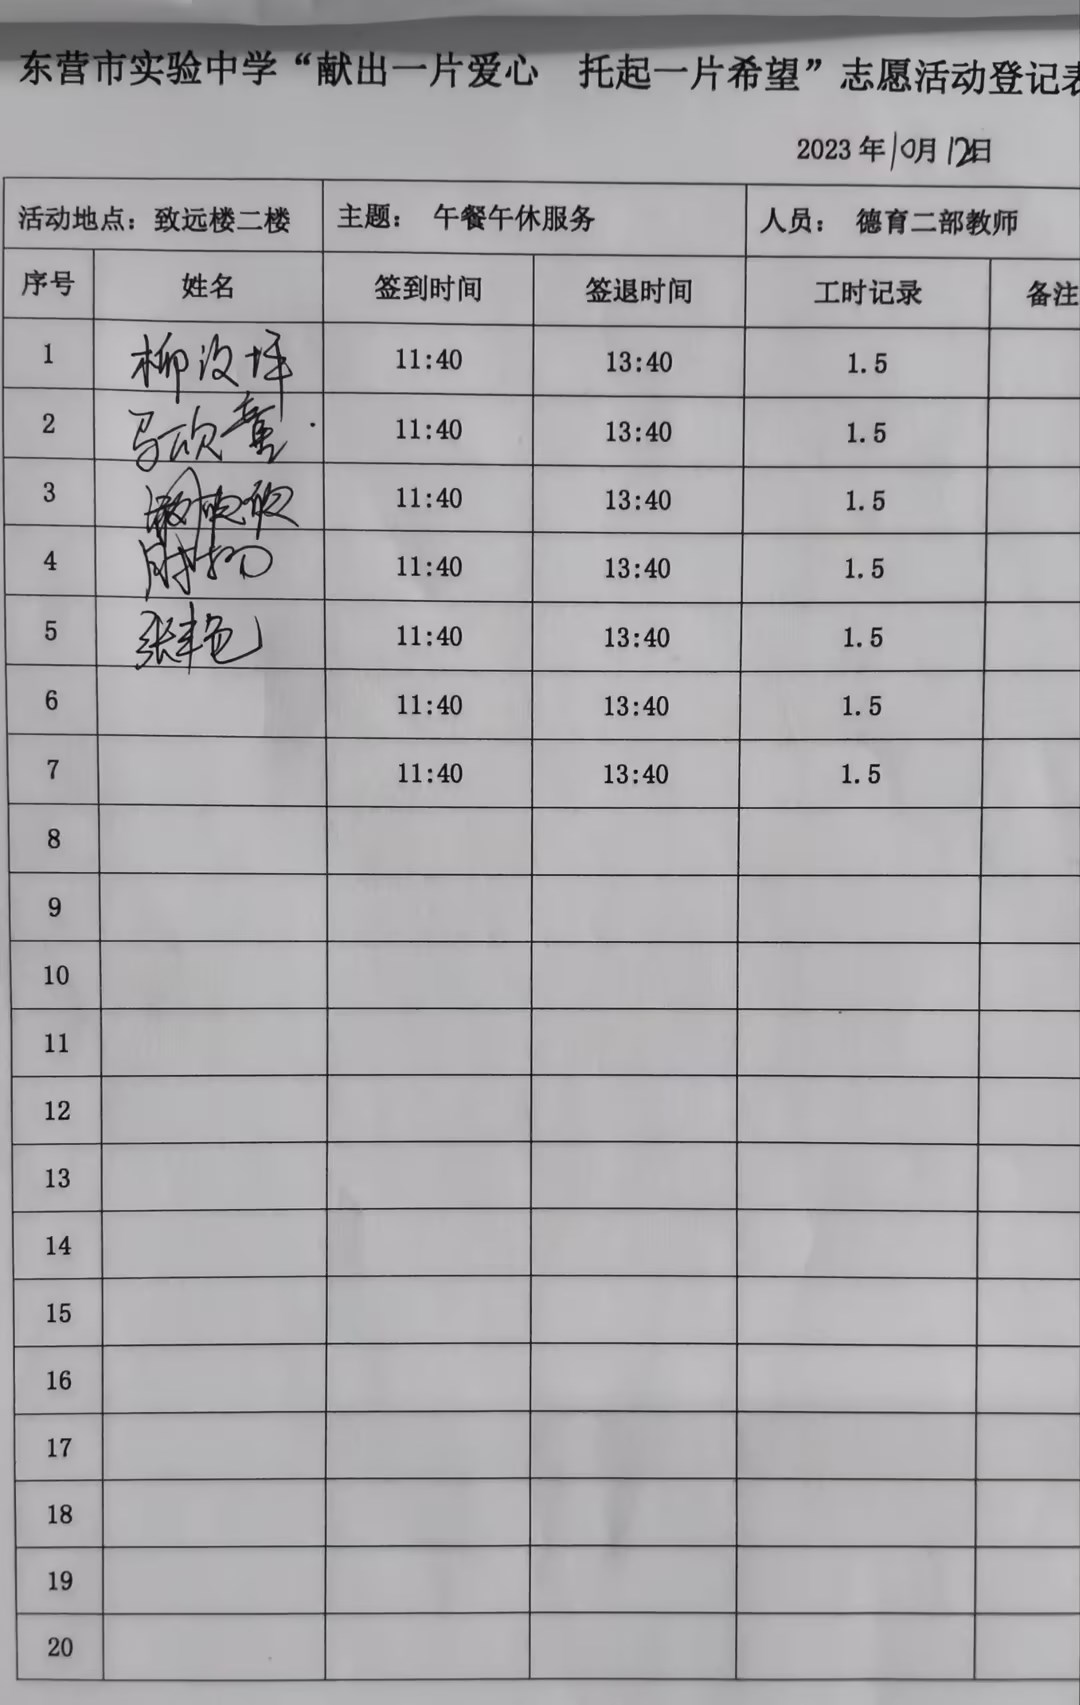 东营市实验中学“献出一片爱心 托起一片希望”志愿活动登记表
2023年10月12日
活动地点：致远楼二楼 主题： 午餐午休服务 人员： 德育二部教师
序号 姓名 签到时间 签退时间 工时记录 备注
1 柳汶 11:40 13:40 1.5
2 马欣童 11:40 13:40 1.5
3 11:40 13:40 1.5
4 11:40 13:40 1.5
5 张丰艳 11:40 13:40 1.5
6 11:40 13:40 1.5
7 11:40 13:40 1.5
8
9
10
11
12
13
14
15
16
17
18
19
20